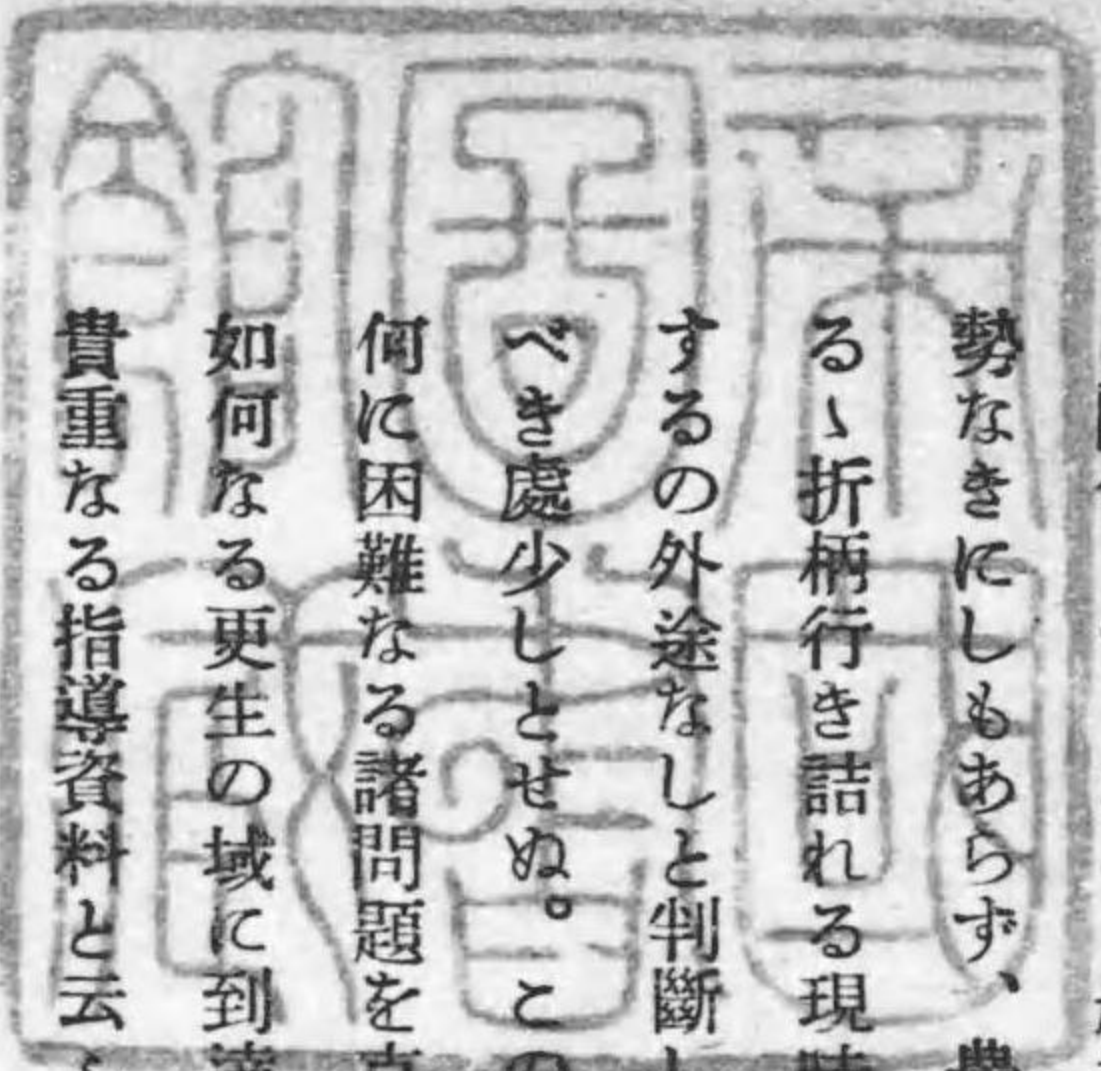 勢なきにしもあらず、農
るゝ折柄行き詰れる現時
するの外途なしと判斷し
べき處少しとせぬ。この
何に困難なる諸問題を
如何なる更生の域に到達
貴重なる指導資料と云